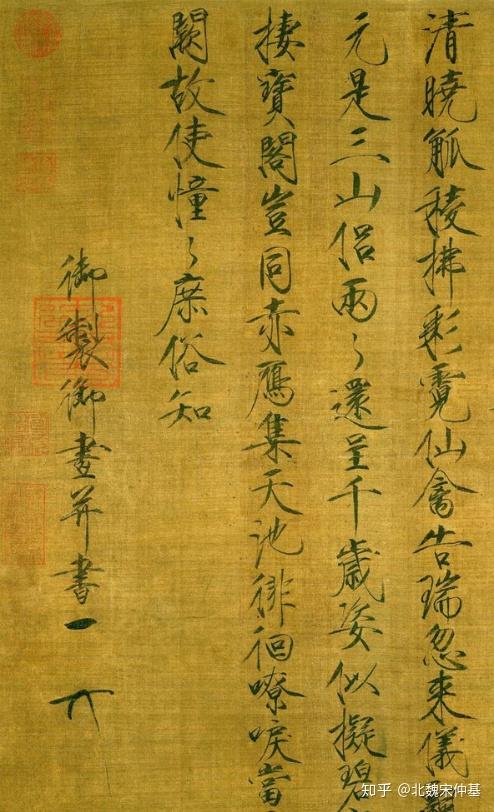 清曉觚稜拂彩霓仙禽告瑞忽來儀
元是三山侶兩〻還呈千歲姿似擬碧
棲寶閣豈同赤鴈集天池徘徊嘹唳當
闕故使憧〻庶俗知
御製御畫并書
知乎 @北魏宋仲基